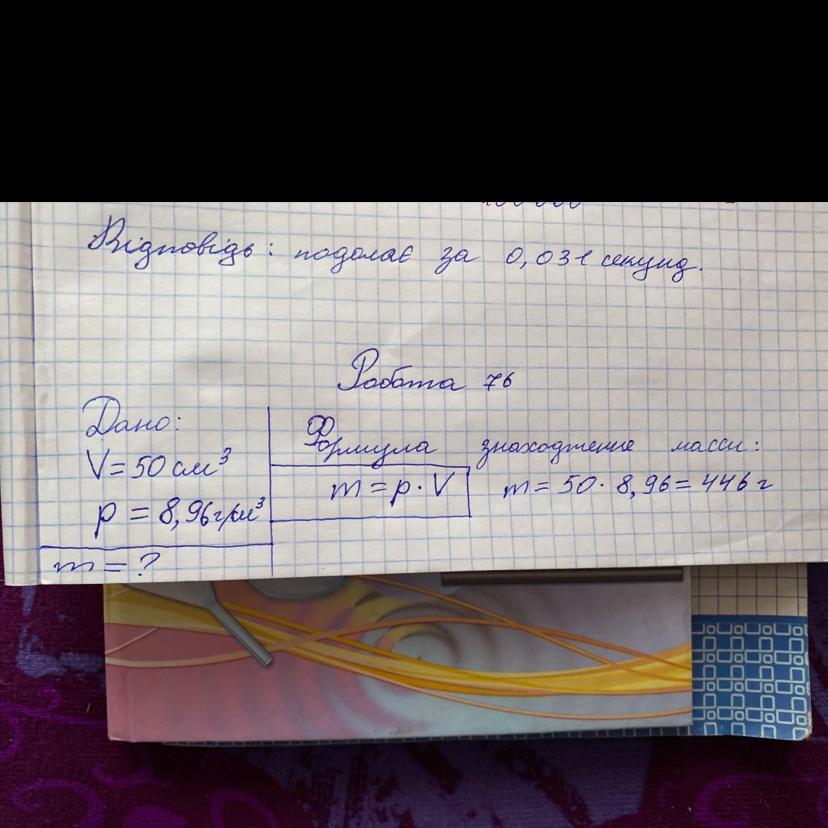 Відповідь: подолає за 0,031 секунд.
Работа 76
Дано:
V = 50 см³
p = 8,96 г/см³
m = ?
Формула знаходження масси:
m = p · V
m = 50 · 8,96 = 446 г